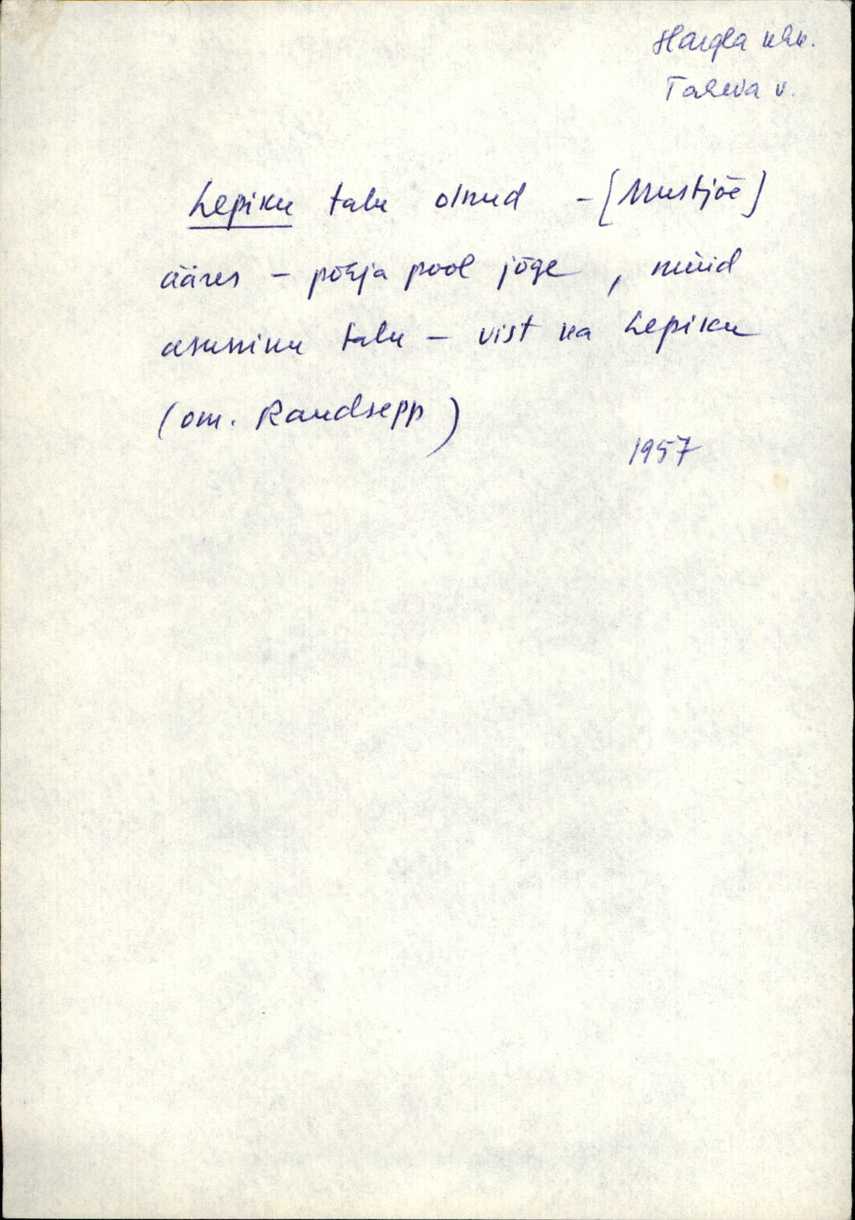 Hargla khk.
Taheva v.
Lepiku talu olnud - [Mustjõe]
ääres - põhja pool jõge, nüüd
asuniku talu - vist ka Lepiku
(om. Raudsepp)
1957